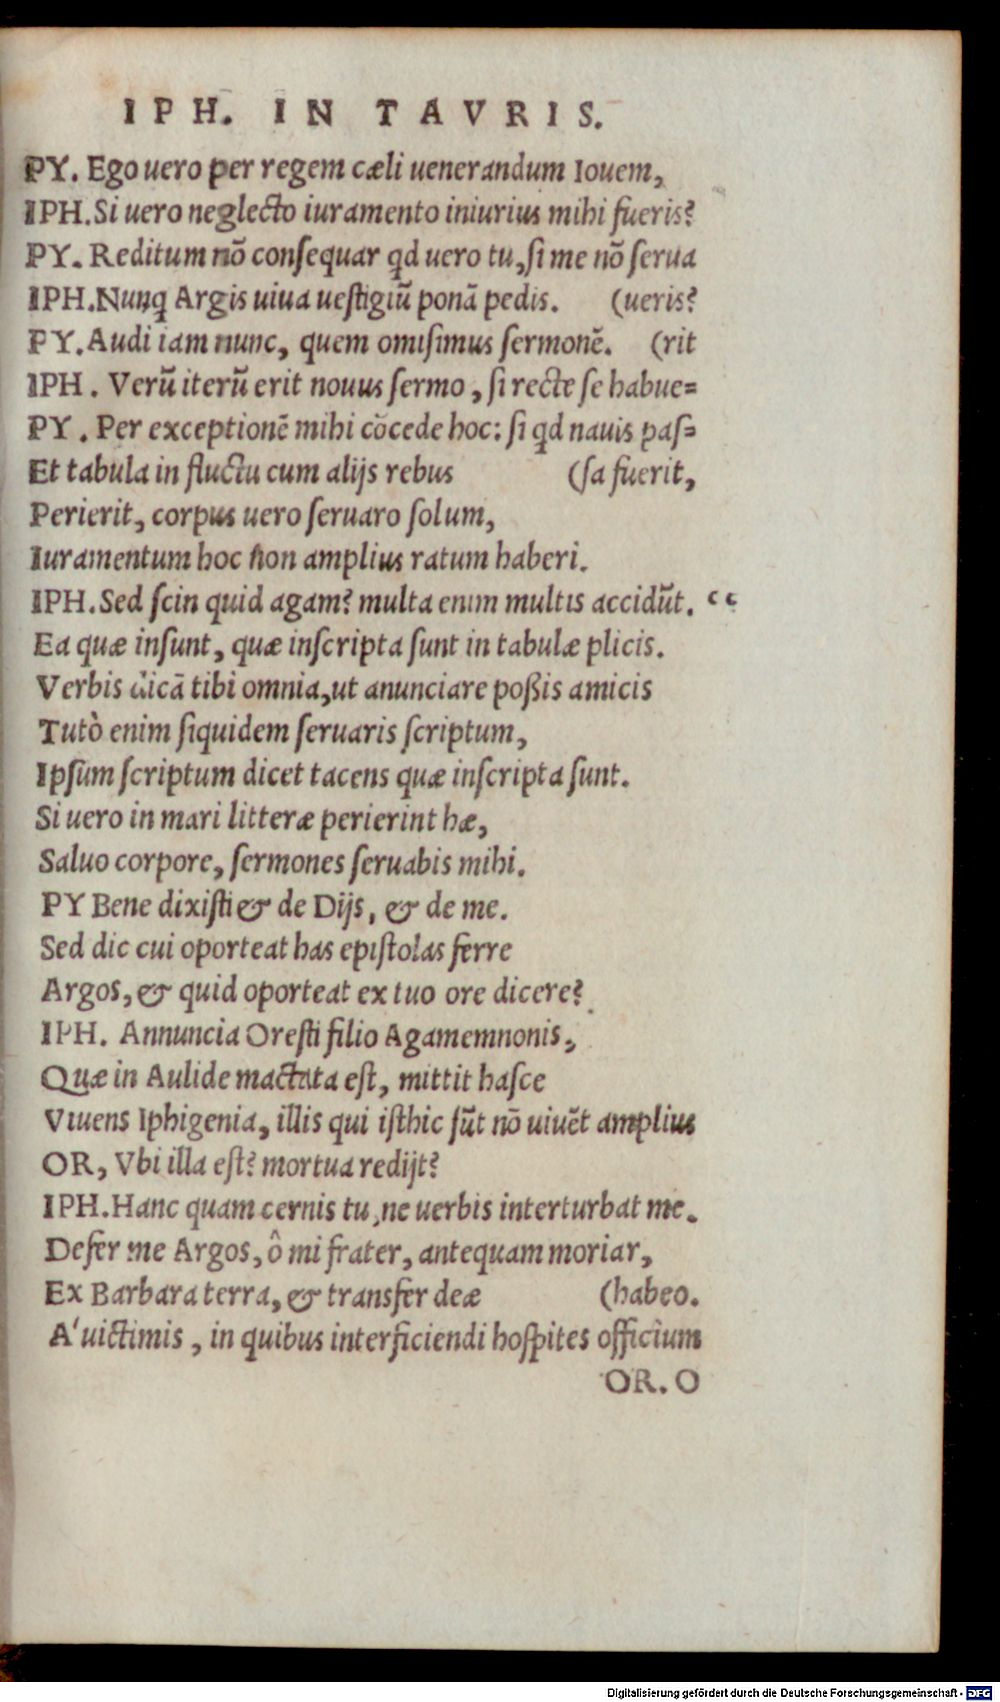 IPH. IN TAVRIS.
PY. Ego uero per regem cæli uenerandum Iouem,
IPH. Si uero neglecto iuramento iniurius mihi fueris?
PY. Reditum nō consequar qd uero tu, si me nō serua
IPH. Nunq Argis uiua uestigiū ponā pedis. (ueris?
PY. Audi iam nunc, quem omisimus sermonē. (rit
IPH. Verū iterū erit nouus sermo, si recte se habue=
PY. Per exceptionē mihi cōcede hoc: si qd nauis pas=
Et tabula in fluctu cum alijs rebus (sa fuerit,
Perierit, corpus uero seruaro solum,
Iuramentum hoc non amplius ratum haberi.
IPH. Sed scin quid agam? multa enim multis accidūt. “
Ea quæ insunt, quæ inscripta sunt in tabulæ plicis.
Verbis dicā tibi omnia, ut anunciare poßis amicis
Tutò enim siquidem seruaris scriptum,
Ipsum scriptum dicet tacens quæ inscripta sunt.
Si uero in mari litteræ perierint hæ,
Saluo corpore, sermones seruabis mihi.
PY Bene dixisti & de Dijs, & de me.
Sed dic cui oporteat has epistolas ferre
Argos, & quid oporteat ex tuo ore dicere?
IPH. Annuncia Oresti filio Agamemnonis,
Quæ in Aulide mactata est, mittit hasce
Viuens Iphigenia, illis qui isthic sūt nō uiuēt amplius
OR, Vbi illa est? mortua redijt?
IPH. Hanc quam cernis tu, ne uerbis interturbat me.
Defer me Argos, ô mi frater, antequam moriar,
Ex Barbara terra, & transfer deæ (habeo.
A' uictimis, in quibus interficiendi hospites officium
OR. O
Digitalisierung gefördert durch die Deutsche Forschungsgemeinschaft - DFG